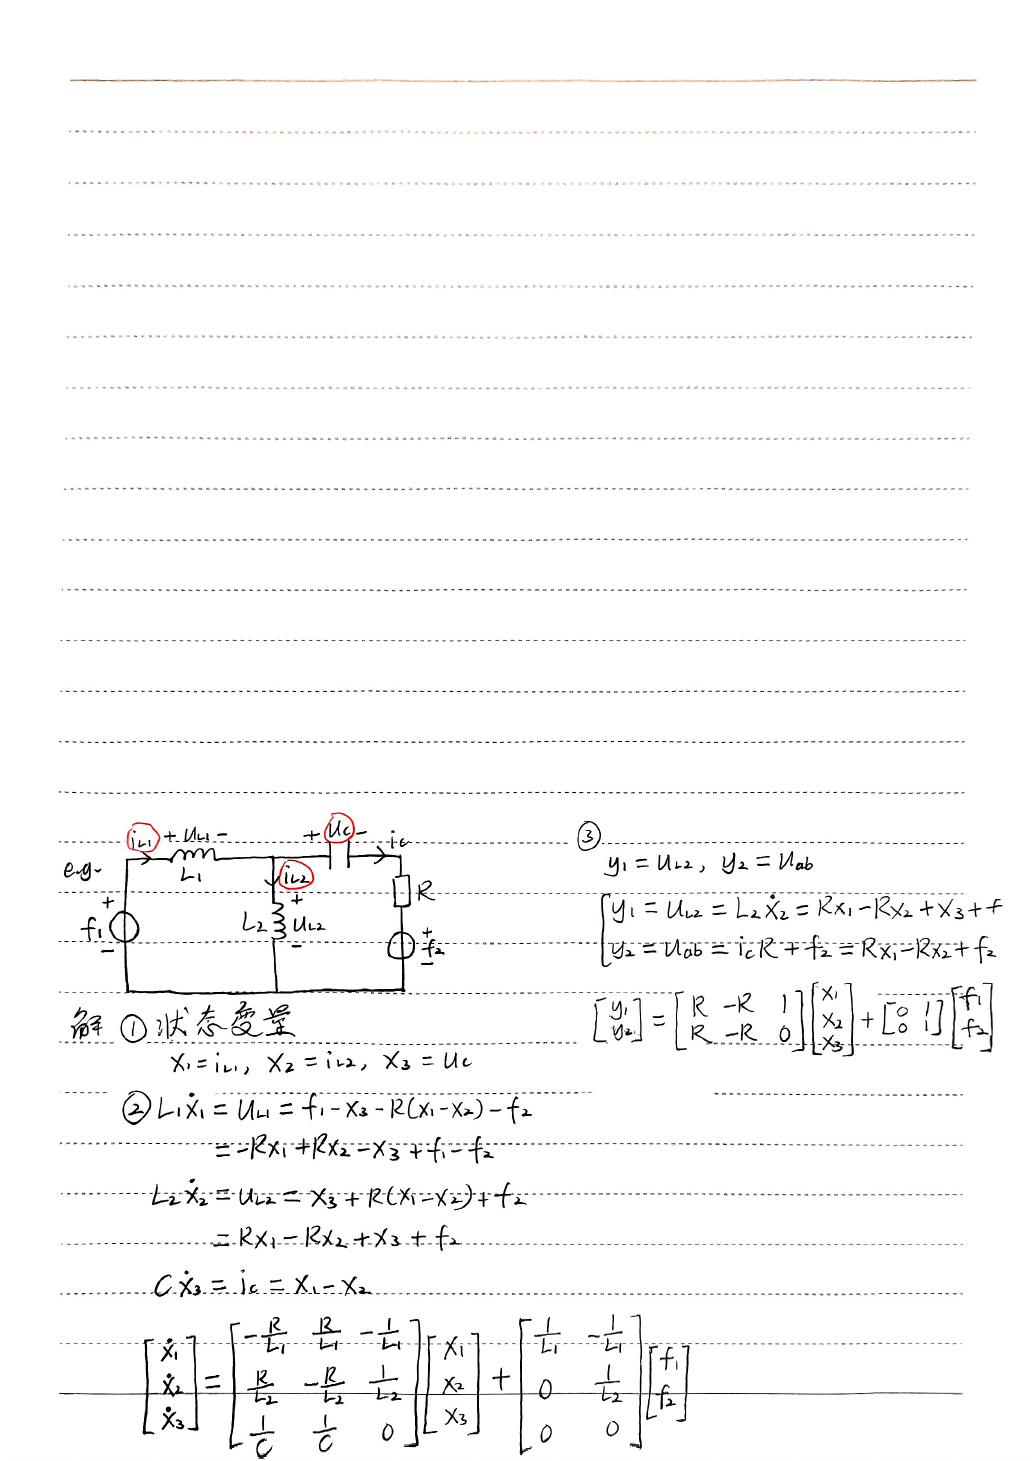 e.g.
i_{L1} + u_{L1} -
L_1
+ u_c -
i_c
i_{L2}
R
+ f_1 -
L_2
+ u_{L2} -
+ f_2 -
解 ① 状态变量
x_1 = i_{L1}, x_2 = i_{L2}, x_3 = u_c
② L_1ẋ_1 = u_{L1} = f_1 - x_3 - R(x_1 - x_2) - f_2
= -Rx_1 + Rx_2 - x_3 + f_1 - f_2
L_2ẋ_2 = u_{L2} = x_3 + R(x_1 - x_2) + f_2
= Rx_1 - Rx_2 + x_3 + f_2
Cẋ_3 = i_c = x_1 - x_2
[ẋ_1; ẋ_2; ẋ_3] = [-R/L_1 R/L_1 -1/L_1; R/L_2 -R/L_2 1/L_2; 1/C 1/C 0] [x_1; x_2; x_3] + [1/L_1 -1/L_1; 0 1/L_2; 0 0] [f_1; f_2]
③
y_1 = u_{L2}, y_2 = u_{ab}
{ y_1 = u_{L2} = L_2ẋ_2 = Rx_1 - Rx_2 + x_3 + f
y_2 = u_{ab} = i_cR + f_2 = Rx_1 - Rx_2 + f_2
[y_1; y_2] = [R -R 1; R -R 0] [x_1; x_2; x_3] + [0 1; 0 1] [f_1; f_2]